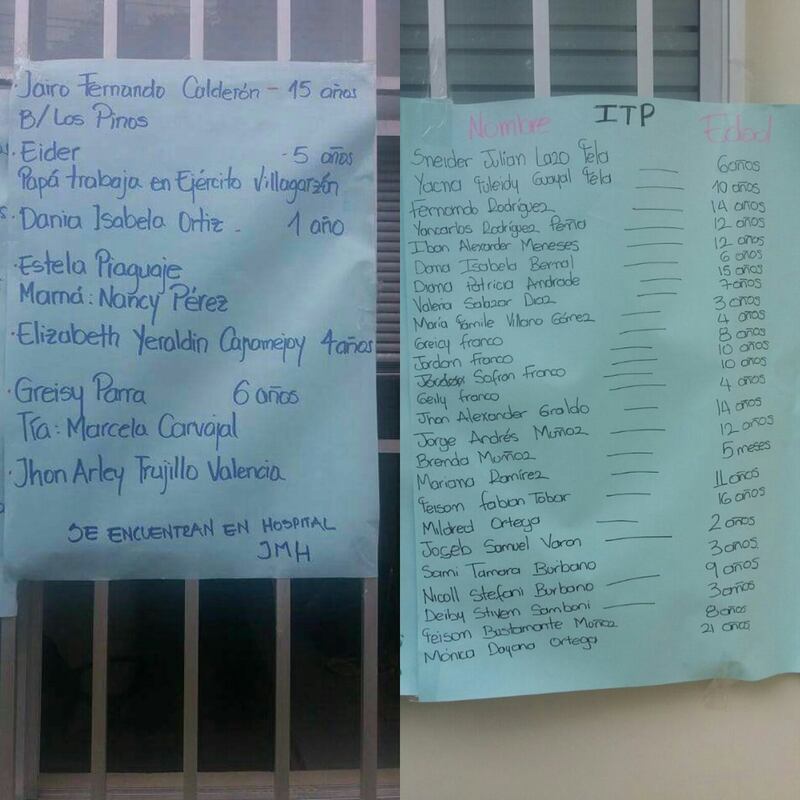 · Jairo Fernando Calderón – 15 años
B/ Los Pinos
· Eider - 5 años
Papá trabaja en Ejército Villagarzón
· Dania Isabela Ortiz - 1 año
Estela Piaguaje
Mamá: Nancy Pérez
· Elizabeth Yeraldin Capamejoy 4 años
· Greisy Parra 6 años
Tía: Marcela Carvajal
· Jhon Arley Trujillo Valencia
SE ENCUENTRAN EN HOSPITAL
JMH
ITP
Nombre Edad
Sneider Julian Lazo 6 años
Yacna 10 años
Fernando Rodríguez 14 años
Yancarlos Rodríguez Peña 12 años
Iban Alexander Meneses 12 años
Dana Isabela Bernal 6 años
Diana Patricia Andrade 15 años
Valeria Salazar Diaz 7 años
Maria Yamile Villano Gómez 3 años
Greicy franco 4 años
Jordan franco 8 años
Safron Franco 10 años
Geily franco 10 años
Jhon Alexander Giraldo 4 años
Jorge Andrés Muñoz 14 años
Brenda Muñoz 12 años
Mariana Ramírez 5 meses
Yeison fabian Tobar 11 años
Mildred Ortega 16 años
Joseb Samuel Varon 2 años
Sami Tamara Burbano 3 años
Nicoll Stefani Burbano 9 años
Deiby Stiven Samboni 3 años
Yeison Bustamante Muñoz 8 años
Mónica Dayana Ortega 21 años